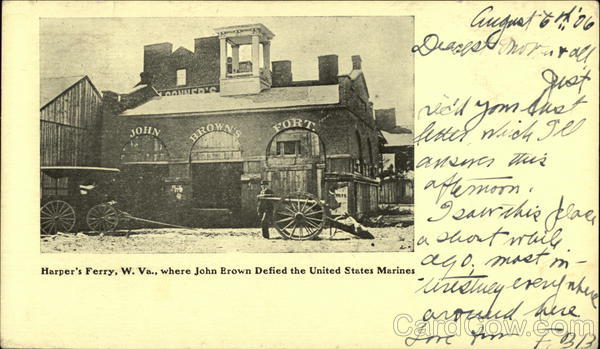 August 6th '06
Dearest Mother & all
Just
rec'd your last
letter, which I'll
answer this
afternoon.
I saw this place
a short while
ago, most in-
everywhere
around here
Love from F.
CONNER'S
JOHN BROWN'S FORT.
Harper's Ferry, W. Va., where John Brown Defied the United States Marines
CardCow.com